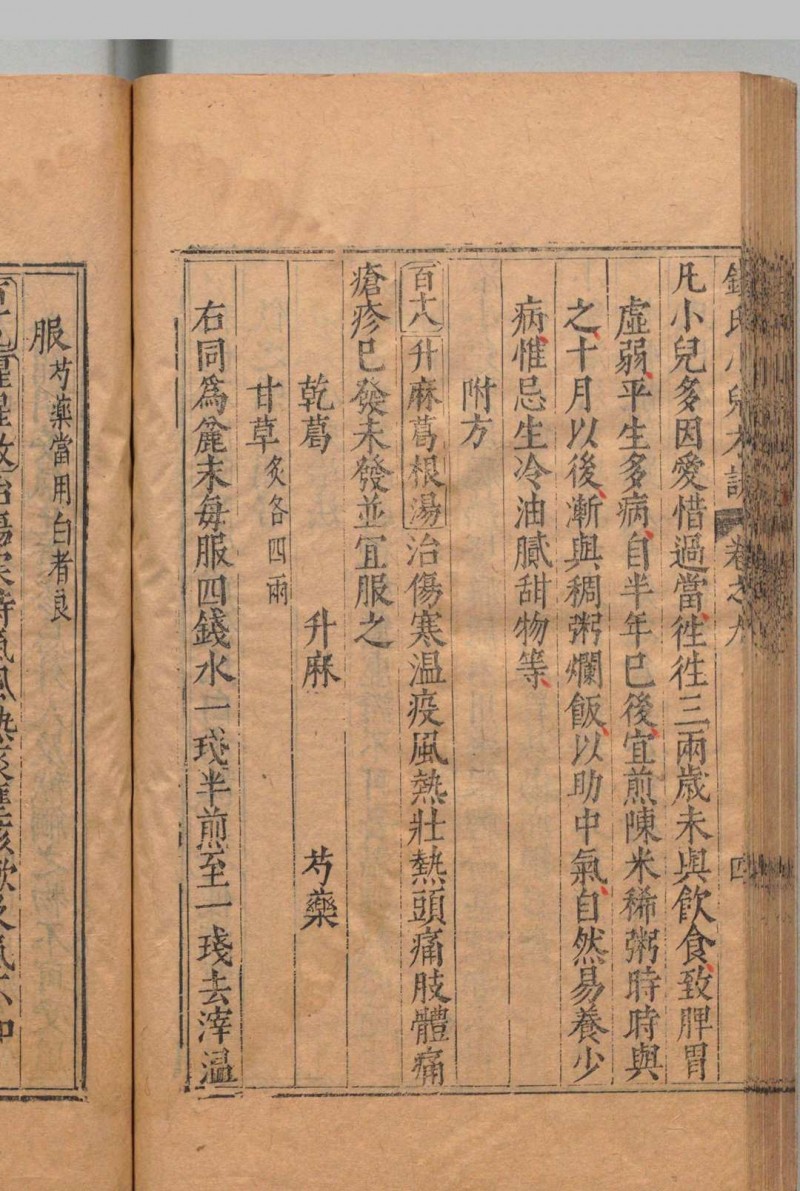 卷之九 四
凡小兒多因愛惜過當徃徃三兩歲未與飲食致脾胃
虛弱平生多病自半年已後宜煎陳米稀粥時時與
之十月以後漸與稠粥爛飯以助中氣自然易養少
病惟忌生冷油膩甜物等
附方
百十八 升麻葛根湯 治傷寒温疫風熱壯熱頭痛肢體痛
瘡疹已發未發並宜服之
乾葛 升麻 芍藥
甘草 炙各四兩
右同為麄末每服四錢水一琖半煎至一琖去滓温
服 芍藥當用白者良